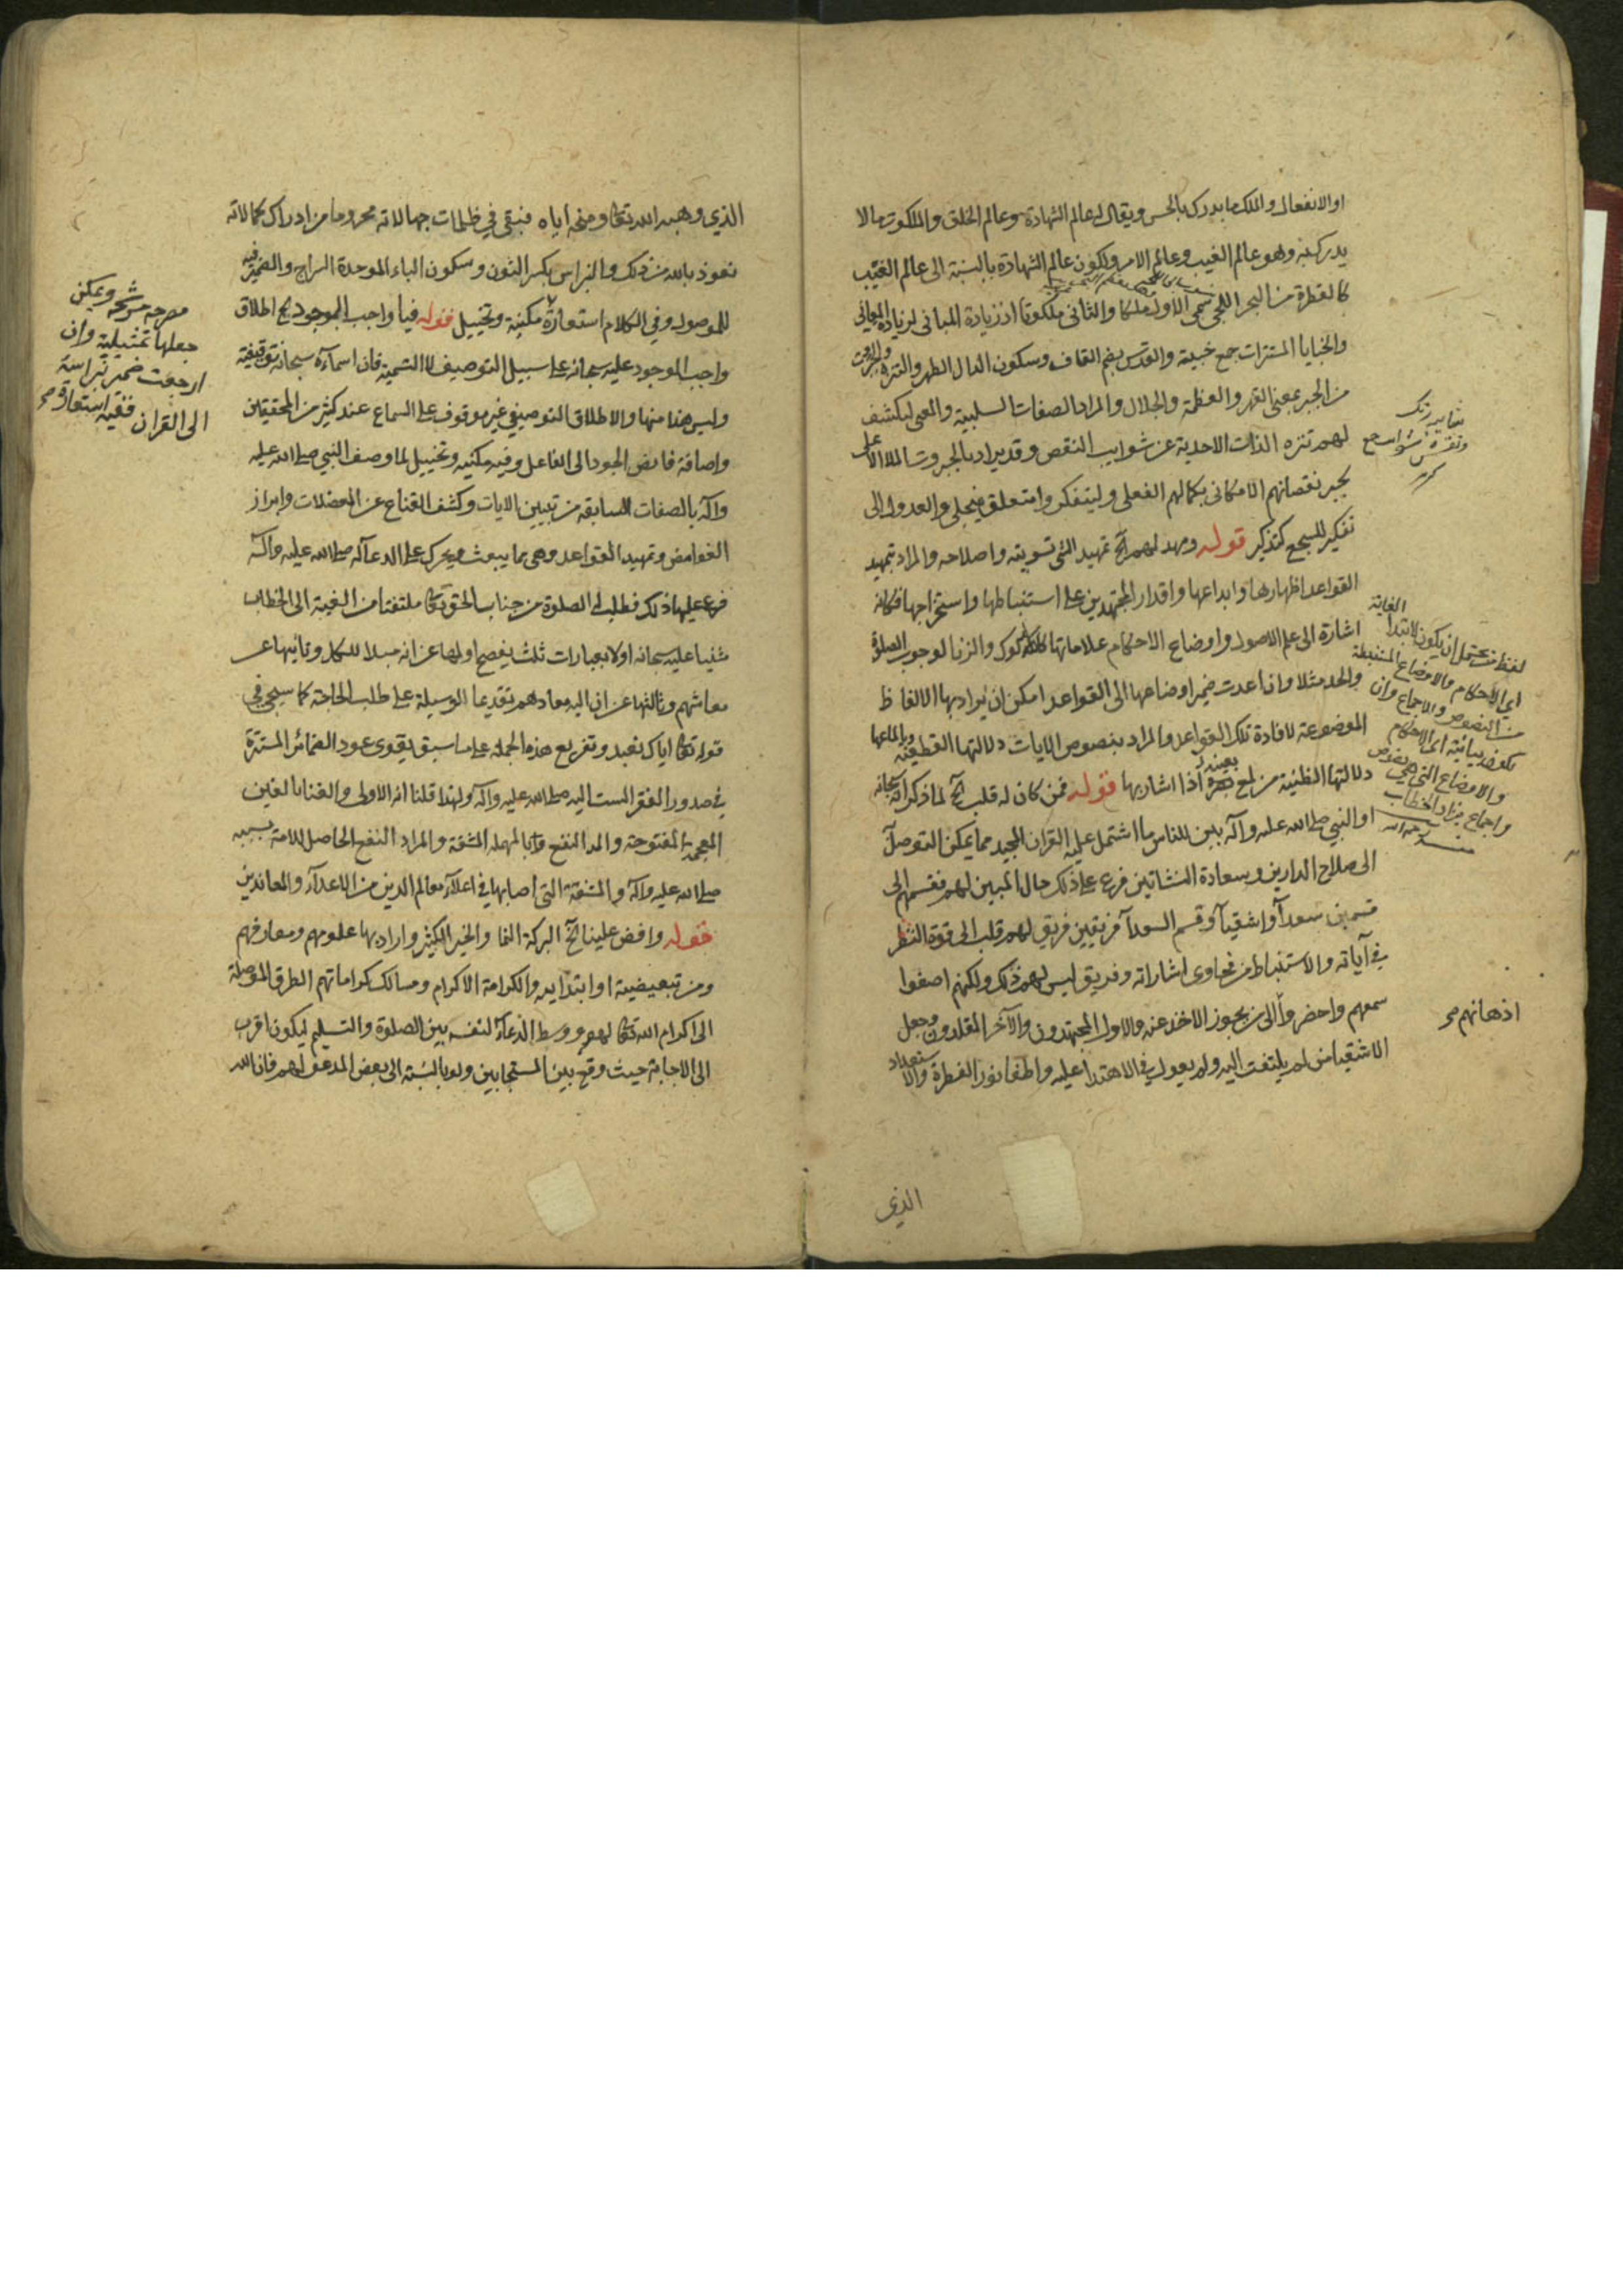 او الانفعال والملك ما يدرك بالحس ويقال له عالم الشهادة وعالم الخلق والملكوت ما لا
يدرك به وهو عالم الغيب وعالم الامر ولكون عالم الشهادة بالنسبة الى عالم الغيب
كالقطرة من البحر اللجي سمى الاول ملكا والثانى ملكوتا اذ زيادة المبانى لزيادة المعانى
والخبايا المستترات جمع خبيئة والقدس بضم القاف وسكون الدال الطهر والتنزه والجبروت
من الجبر بمعنى القهر والعظمة والجلال والمراد الصفات السلبية والمعنى لينكشف
لهم تنزه الذات الاحدية عن شوايب النقص وقد يراد بالجبروت الملا الاعلى
يجبر نقصانهم الامكانى بكمالهم الفعلى وليتفكروا متعلق بتجلى والعدول الى
تفكير للسجع كتذكير قوله ومهد لهم آلخ تمهيد الشى تسويته واصلاحه والمراد بتمهيد
القواعد اظهارها وابداعها واقدار المجتهدين على استنباطها واستخراجها فكانه
اشارة الى علم الاصول واوضاع الاحكام علاماتها كالدلوك والزنا لوجوب الصلوة
والحد مثلا وان اعدت ضمير اوضاعها الى القواعد امكن ان يراد بها الالفاظ
الموضوعة لافادة تلك القواعد والمراد بنصوص الايات دلالتها القطعية وبالماعها
دلالتها الظنية من لمع بعينه اذا اشار بها قوله فمن كان له قلب آلخ لما ذكر انه سبحانه
او النبي صلى الله عليه وآله بين للناس ما اشتمل عليه القران المجيد مما يمكن التوصل
الى صلاح الدارين وسعادة النشاتين فرع على ذلك حال المبين لهم فقسمهم الى
قسمين سعدآ واشقيآ وقسم السعدآ فريقين فريق لهم قلب الى قوة النظر
في آياته والاستنباط من فحاوى اشاراته وفريق ليس لهم ذلك ولكنهم اصغوا
سمعهم واحضروا الى من يجوز الاخذ عنه والاول المجتهدون والآخر المقلدون وجعل
الاشقيا من لم يلتفت اليه ولم يعول في الاهتدا عليه واطفا نور الفطرة والاستعداد
الذي
لفظ من يحتمل ان يكون لابتدا الغاية
اي الاحكام والاوضاع المستنبطة
من النصوص والاجماع وان
يكون بيانية اى الاحكام
والاوضاع التى هى نصوص
واجماع
منه رحمه الله
اذهانهم صح
الذي وهبه الله تعالى ومنحه اياه فبقى في ظلمات جهالاته محروما من ادراك كمالاته
نعوذ بالله من ذلك والنبراس بكسر النون وسكون الباء الموحدة السراج والضمير فيه
للموصول وفي الكلام استعارة مكنية وتخييل قوله فيا واجب الوجود آلخ اطلاق
واجب الوجود عليه سبحانه على سبيل التوصيف لا التسمية فان اسماءه سبحانه توقيفية
وليس هذا منها والاطلاق التوصيفي غير موقوف على السماع عند كثير من المحققين
واضافة فايض الجود الى الفاعل وفيه مكنيه وتخييل لما وصف النبي صلى الله عليه
وآله بالصفات السابقه من تبيين الايات وكشف القناع عن المعضلات وابراز
الغوامض وتمهيد القواعد وهى مما يبعث ويحرك على الدعآ له صلى الله عليه وآله
فرع عليها ذلك فطلب له الصلوة من جناب الحق تعالى ملتفتا من الغيبة الى الخطاب
مثنيا عليه سبحانه اولا بعبارات ثلث يفصح اولها عن انه مبدا للكل وثانيها عن
معاشهم وثالثها عن ان اليه معادهم تقديما للوسيلة على طلب الحاجة كما سيجى في
قوله تعالى اياك نعبد وتفريع هذه الجملة على ما سبق يقوى عود الضمائر المستترة
في صدور الفقر الست اليه صلى الله عليه وآله ولهذا قلنا انه الاولى والغنا بالغين
المعجمة المفتوحة والمد النفع وبالمهمله المشقة والمراد النفع الحاصل للامة بسببه
صلى الله عليه وآله والمشقة التى اصابها في اعلاء معالم الدين من الاعداء والمعاندين
قوله وافض علينا آلخ البركة النما والخير الكثير واراد بها علومهم ومعارفهم
ومن تبعيضية او ابتدايه والكرامة الاكرام ومسالك كراماتهم الطرق الموصلة
الى اكرام الله تعالى لهم ووسط الدعآ لنفسه بين الصلوة والتسليم ليكون اقرب
الى الاجابة حيث وقع بين المستجابين ولو بالنسبة الى بعض المدعو لهم فان الله
مصرحه مرشحه ويمكن
جعلها تمثيلية وان
ارجعت ضمير نبراسه
الى القران ففيه استعارة صح